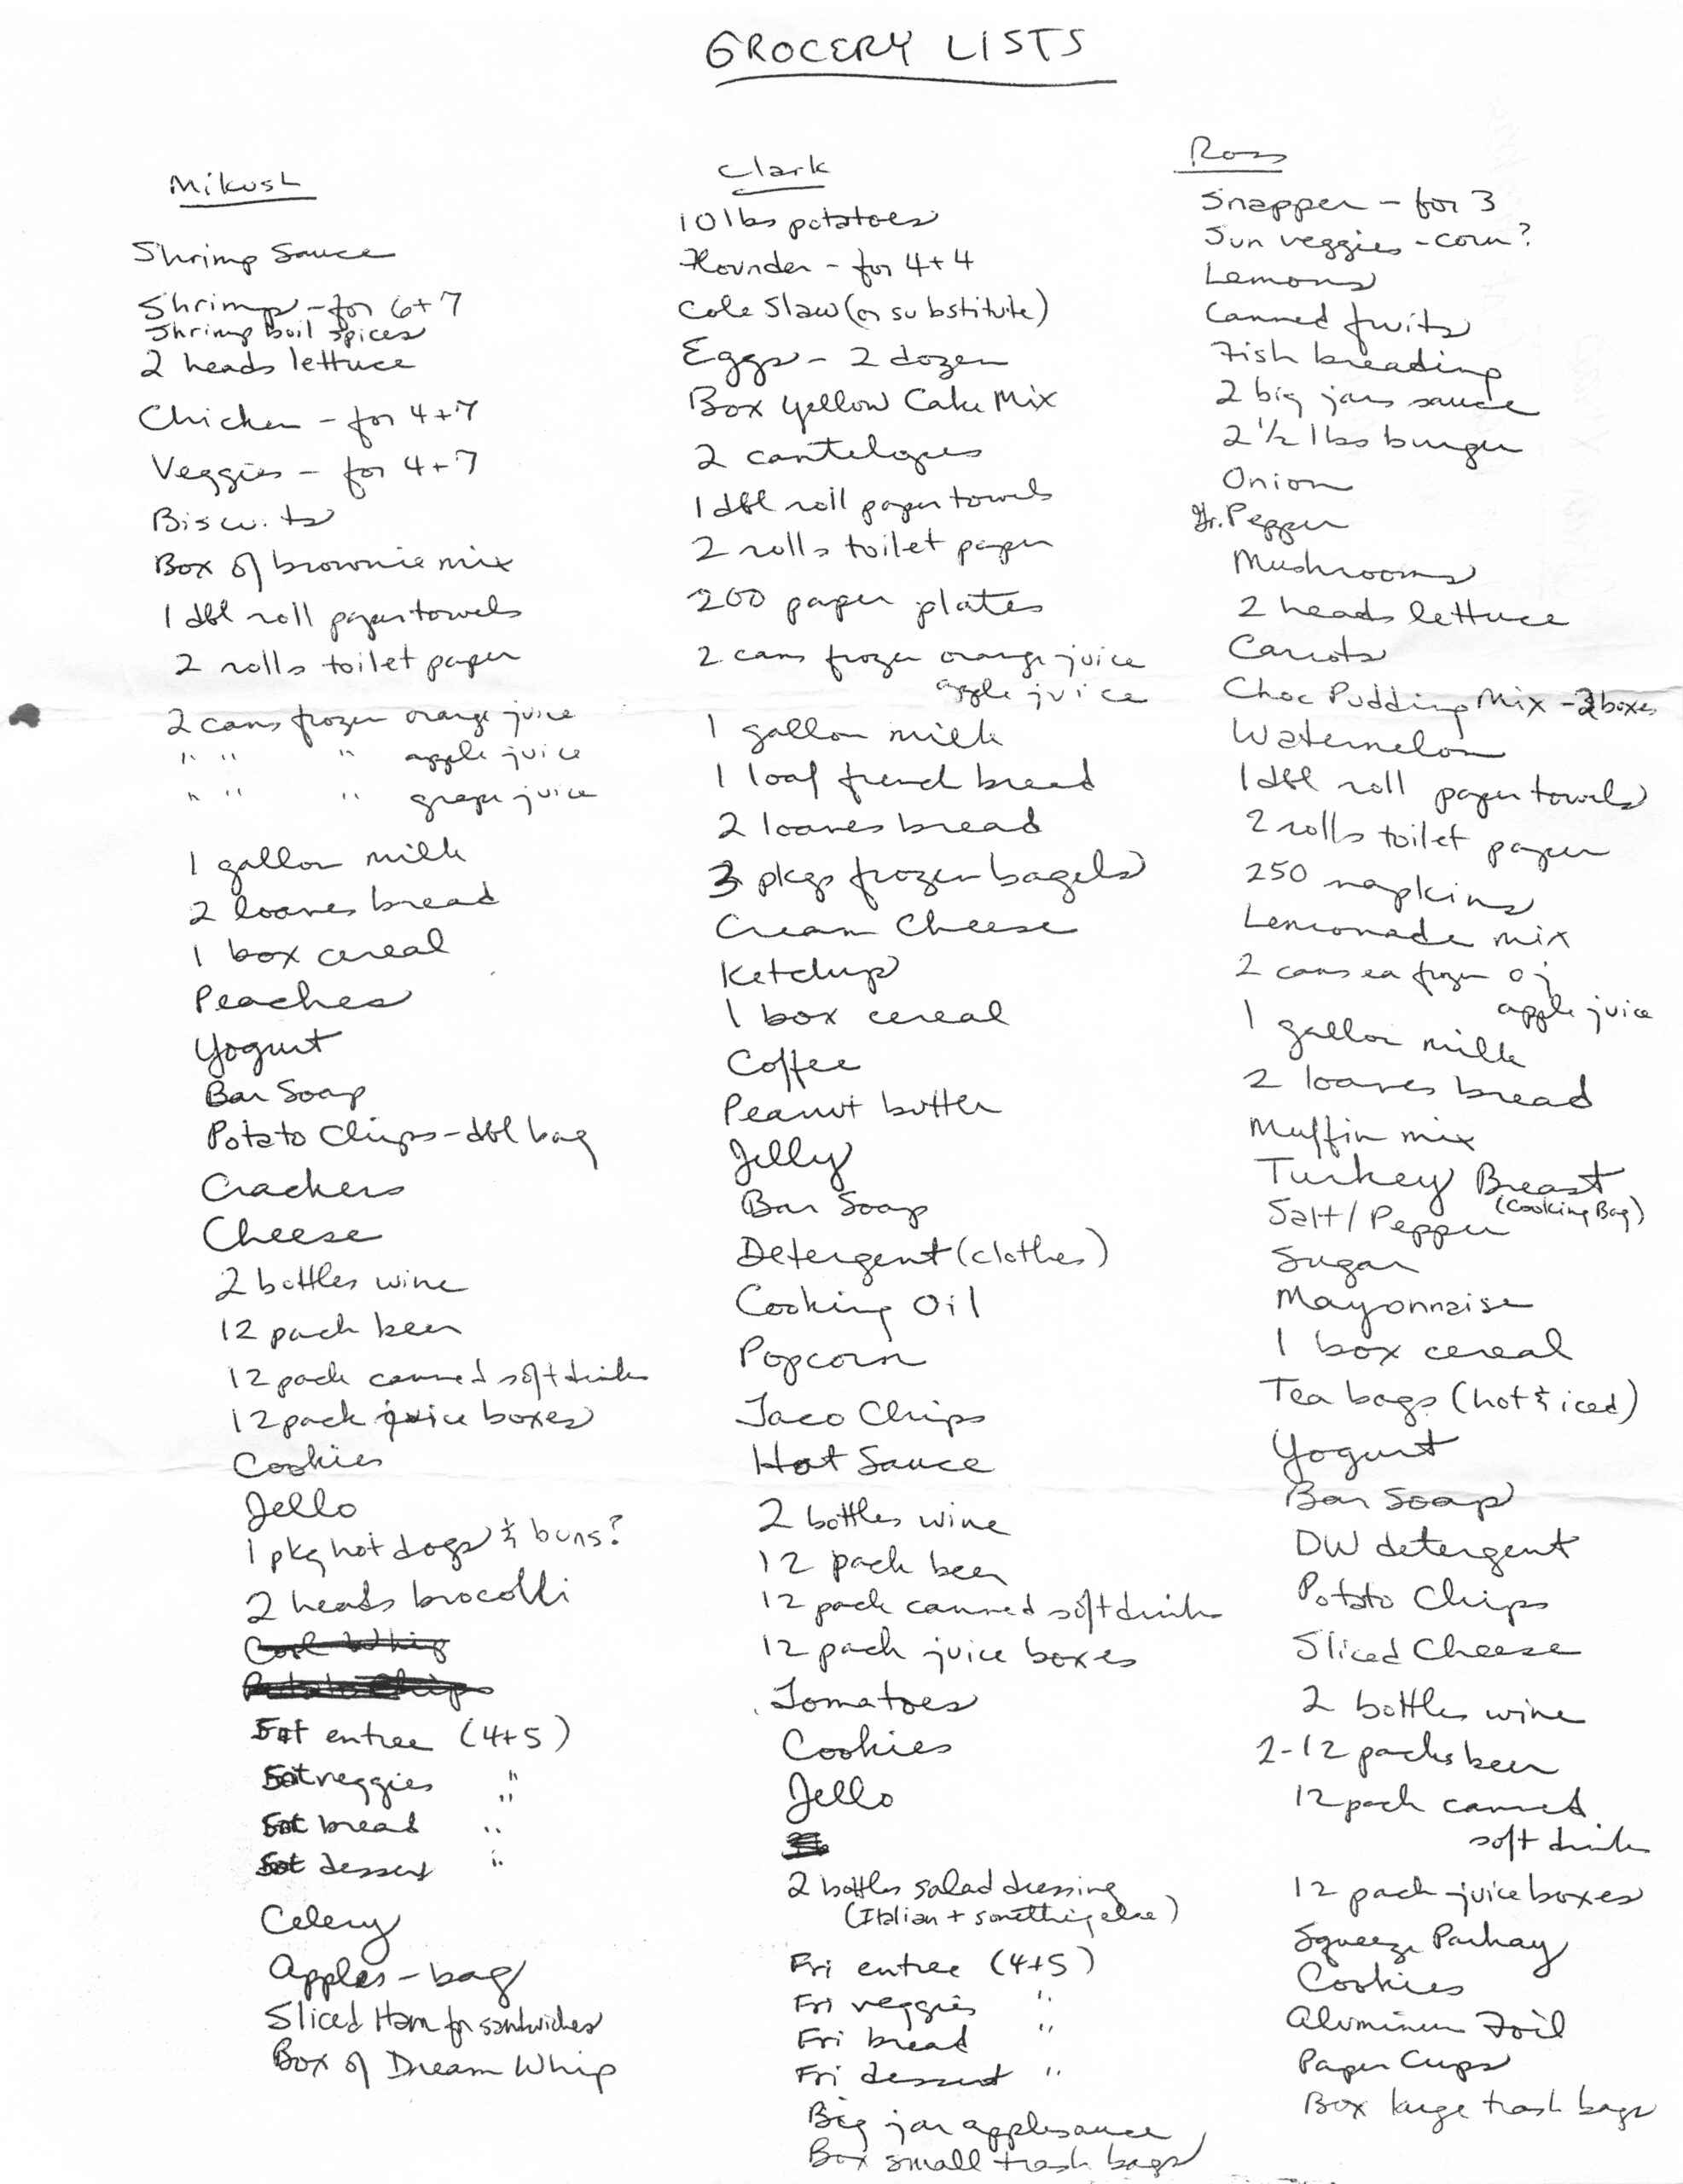 GROCERY LISTS
Mikush
Shrimp Sauce
Shrimp - for 6+7
Shrimp boil spices
2 heads lettuce
Chicken - for 4+7
Veggies - for 4+7
Biscuits
Box of brownie mix
1 dbl roll paper towels
2 rolls toilet paper
2 cans frozen orange juice
" " " apple juice
" " " grape juice
1 gallon milk
2 loaves bread
1 box cereal
Peaches
Yogurt
Bar Soap
Potato Chips - dbl bag
Crackers
Cheese
2 bottles wine
12 pack beer
12 pack canned soft drinks
12 pack juice boxes
Cookies
Jello
1 pkg hot dogs & buns?
2 heads brocolli
Cool Whip
Potato Chips
Sat entree (4+5)
Sat veggies "
Sat bread "
Sat dessert "
Celery
Apples - bag
Sliced Ham for sandwiches
Box of Dream Whip
Clark
10 lbs potatoes
Flounder - for 4+4
Cole Slaw (or substitute)
Eggs - 2 dozen
Box Yellow Cake Mix
2 cantelopes
1 dbl roll paper towels
2 rolls toilet paper
200 paper plates
2 cans frozen orange juice
apple juice
1 gallon milk
1 loaf french bread
2 loaves bread
3 pkgs frozen bagels
Cream Cheese
Ketchup
1 box cereal
Coffee
Peanut butter
Jelly
Bar Soap
Detergent (clothes)
Cooking Oil
Popcorn
Taco Chips
Hot Sauce
2 bottles wine
12 pack beer
12 pack canned soft drinks
12 pack juice boxes
Tomatoes
Cookies
Jello
2 bottles salad dressing
(Italian + something else)
Fri entree (4+5)
Fri veggies "
Fri bread "
Fri dessert "
Big jar applesauce
Box small trash bags
Ross
Snapper - for 3
Sun veggies - corn?
Lemons
Canned fruits
Fish breading
2 big jars sauce
2 1/2 lbs burger
Onion
Gr. Pepper
Mushrooms
2 heads lettuce
Carrots
Choc Pudding Mix - 2 boxes
Watermelon
1 dbl roll paper towels
2 rolls toilet paper
250 napkins
Lemonade mix
2 cans ea frozen oj
apple juice
1 gallon milk
2 loaves bread
Muffin mix
Turkey Breast
(Cooking Bag)
Salt / Pepper
Sugar
Mayonnaise
1 box cereal
Tea bags (hot & iced)
Yogurt
Bar Soap
DW detergent
Potato Chips
Sliced Cheese
2 bottles wine
2-12 packs beer
12 pack canned
soft drinks
12 pack juice boxes
Squeeze Parkay
Cookies
Aluminum Foil
Paper Cups
Box large trash bags